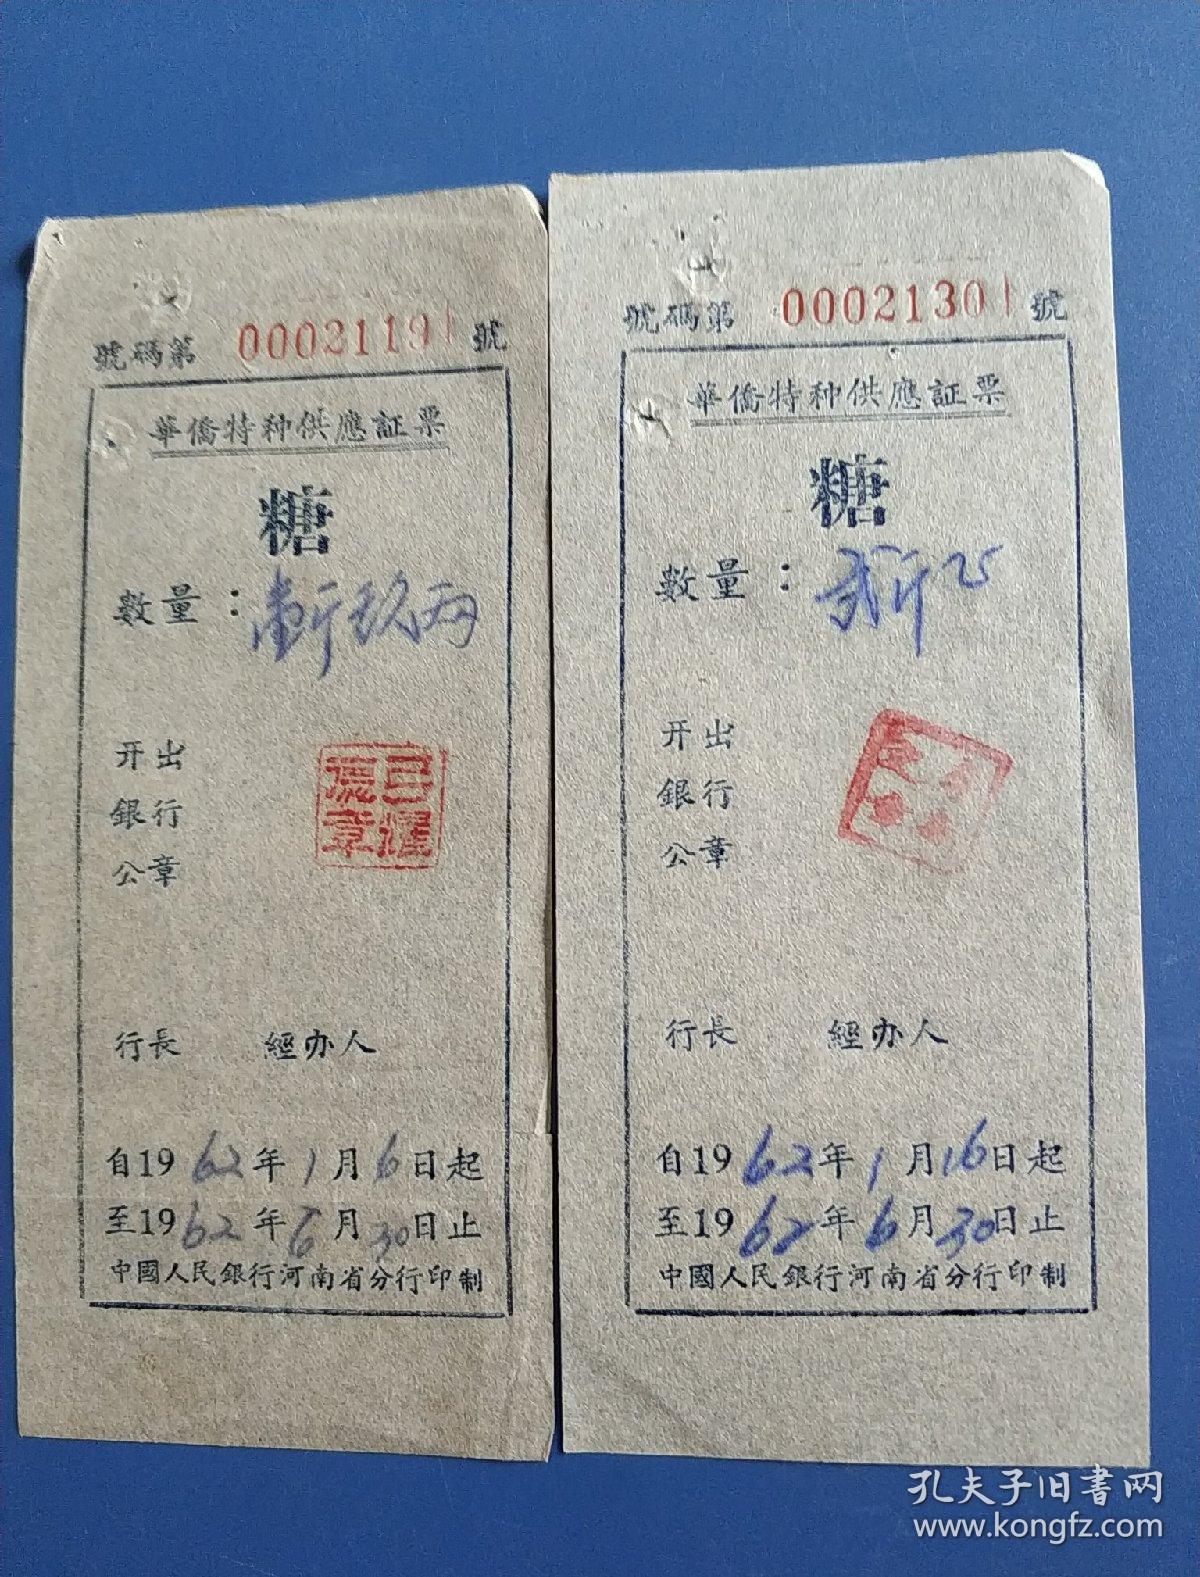 號碼第 0002119 號
華僑特种供應証票
糖
數量：壹斤玖両
开出
銀行
公章
行長 經办人
自1962年1月6日起
至1962年6月30日止
中國人民銀行河南省分行印制
號碼第 0002130 號
華僑特种供應証票
糖
數量：弍斤
开出
銀行
公章
行長 經办人
自1962年1月16日起
至1962年6月30日止
中國人民銀行河南省分行印制
孔夫子旧书网
www.kongfz.com